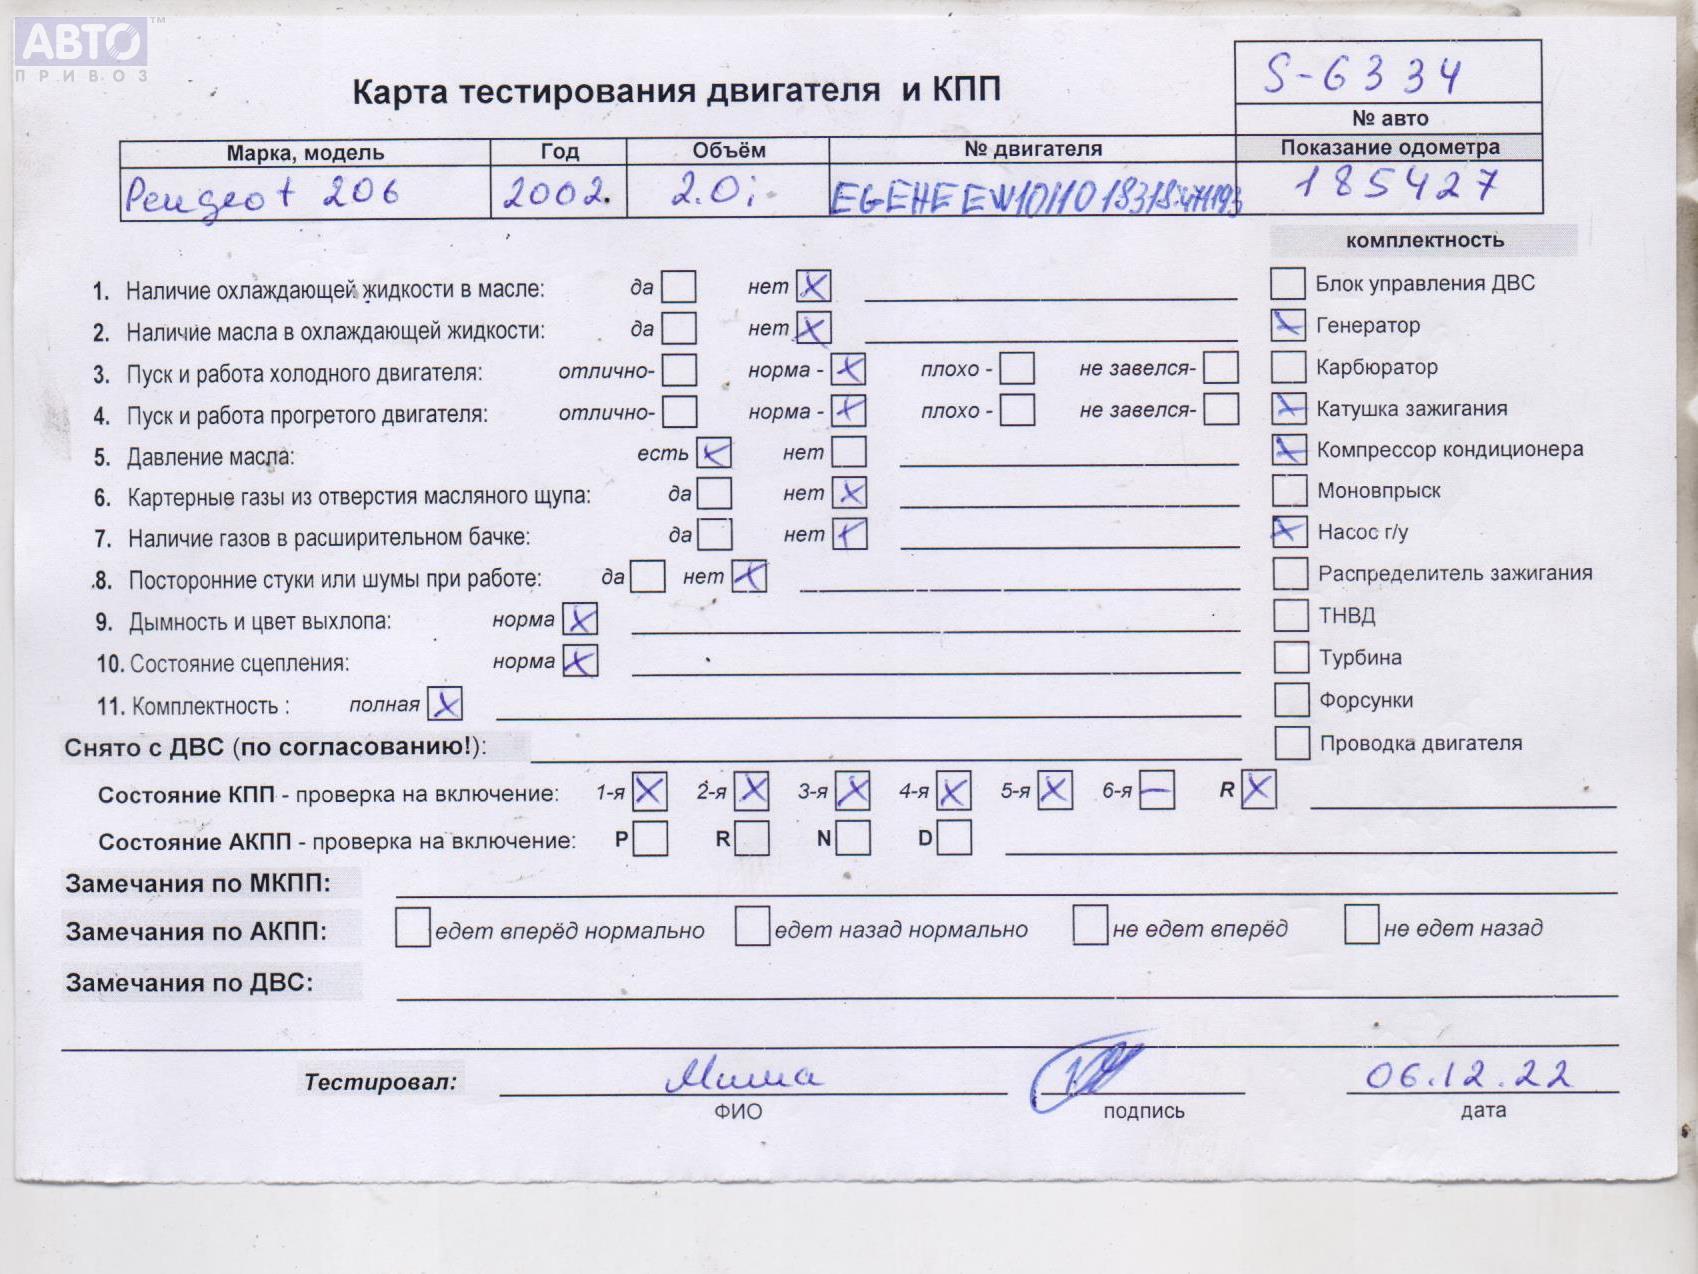 АВТО™
ПРИВОЗ
S-6334
Карта тестирования двигателя и КПП
№ авто
Марка, модель Год Объём № двигателя Показание одометра
Peugeot 206 2002. 2.0i 185427
комплектность
1. Наличие охлаждающей жидкости в масле: да нет X Блок управления ДВС
2. Наличие масла в охлаждающей жидкости: да нет X X Генератор
3. Пуск и работа холодного двигателя: отлично- норма - X плохо - не завелся- Карбюратор
4. Пуск и работа прогретого двигателя: отлично- норма - X плохо - не завелся- X Катушка зажигания
5. Давление масла: есть X нет X Компрессор кондиционера
6. Картерные газы из отверстия масляного щупа: да нет X Моновпрыск
7. Наличие газов в расширительном бачке: да нет X X Насос г/у
8. Посторонние стуки или шумы при работе: да нет X Распределитель зажигания
9. Дымность и цвет выхлопа: норма X ТНВД
10. Состояние сцепления: норма X Турбина
11. Комплектность : полная X Форсунки
Снято с ДВС (по согласованию!): Проводка двигателя
Состояние КПП - проверка на включение: 1-я X 2-я X 3-я X 4-я X 5-я X 6-я — R X
Состояние АКПП - проверка на включение: P R N D
Замечания по МКПП:
Замечания по АКПП: едет вперёд нормально едет назад нормально не едет вперёд не едет назад
Замечания по ДВС:
Тестировал: Миша 06.12.22
ФИО подпись дата